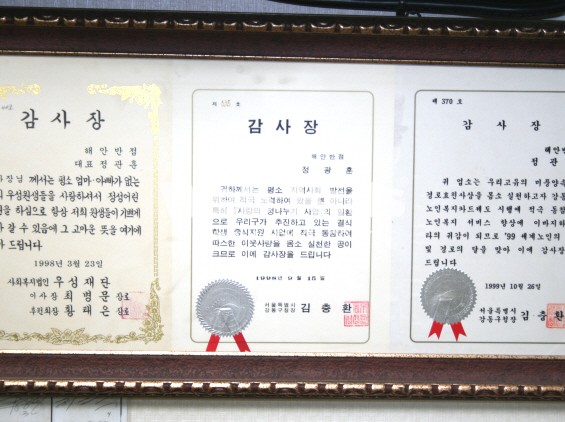 감 사 장
해안반점
대표정관훈
장님 께서는 평소 엄마·아빠가 없는
우성원생들을 사랑하셔서 정성어린
을 하심으로 항상 저희 원생들이 기쁘게
갈 수 있음에 그 고마운 뜻을 여기에
드립니다.
1998년 3월 23일
사회복지법인 우성재단
이사장 최병문
후원회장 황태은
감 사 장
해안반점
정광훈
귀하께서는 평소 지역사회 발전을
위하여 적극 노력하여 왔을 뿐 아니라
특히 「사랑의 콩나누기 사업」의 일환
으로 우리구가 추진하고 있는 결식
학생 중식지원 사업에 적극 동참하여
따스한 이웃사랑을 몸소 실천한 공이
크므로 이에 감사장을 드립니다
1998년 9월 15일
서울특별시
강동구청장 김충환
제 370 호
감 사 장
해안반
정 관
귀 업소는 우리고유의 미풍양속
경로효친사상을 몸소 실천하고자 강동
노인복지카드제도 시행에 적극 동참
노인복지 서비스 향상에 이바지하
타의 귀감이 되므로 '99 세계노인의
및 경로의 달을 맞아 이에 감사장
드립니다.
1999년 10월 26일
서울특별시
강동구청장 김충환